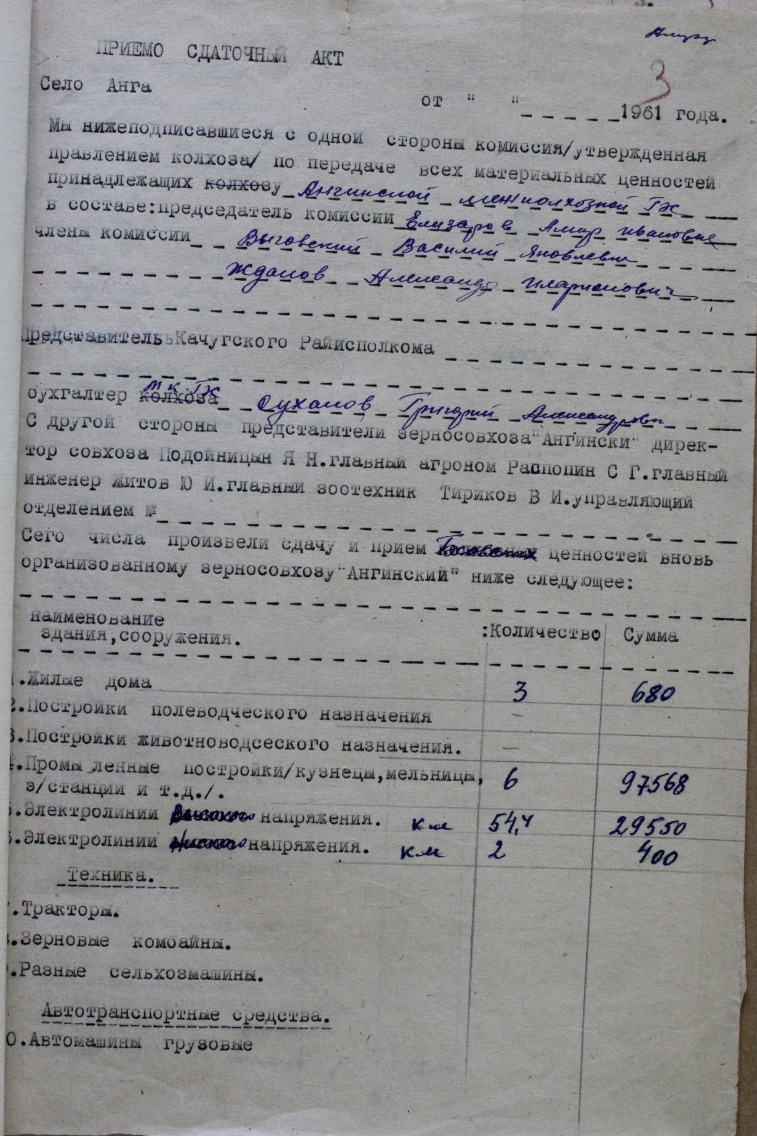 3
ПРИЕМО СДАТОЧНЫЙ АКТ
Село Анга
от " " _ _ _ _ _ 1961 года.
Мы нижеподписавшиеся с одной стороны комиссия/утвержденная
правлением колхоза/ по передаче всех материальных ценностей
принадлежащих колхозу Ангинской межколхозной ГЭС
в составе:председатель комиссии Елизаров Амир Иванович
члены комиссии Выговский Василий Яковлевич
Жданов Александр Иларионович
Представитель Качугского Райисполкома
МК ГЭС
бухгалтер колхоза Суханов Григорий Александрович
С другой стороны представители зерносовхоза"Ангински" дирек-
тор совхоза Подойницын Я Н.главный агроном Распопин С Г.главный
инженер Житов Ю И.главный зоотехник Тириков В И.управляющий
отделением №
Сего числа произвели сдачу и прием ценностей вновь
организованному зерносовхозу"Ангинский" ниже следующее:
наименование
здания,сооружения. :Количество Сумма
.Жилые дома 3 680
2.Постройки полеводческого назначения –
3.Постройки животноводсеского назначения. –
4.Промы ленные постройки/кузнецы,мельницы, 6 97568
э/станции и т.д./.
5.Электролинии Высокого напряжения. км 54,4 29550
6.Электролинии Низкого напряжения. км 2 400
Техника.
.Тракторы.
.Зерновые комбайны.
.Разные сельхозмашины.
Автотранспортные средства.
0.Автомашины грузовые